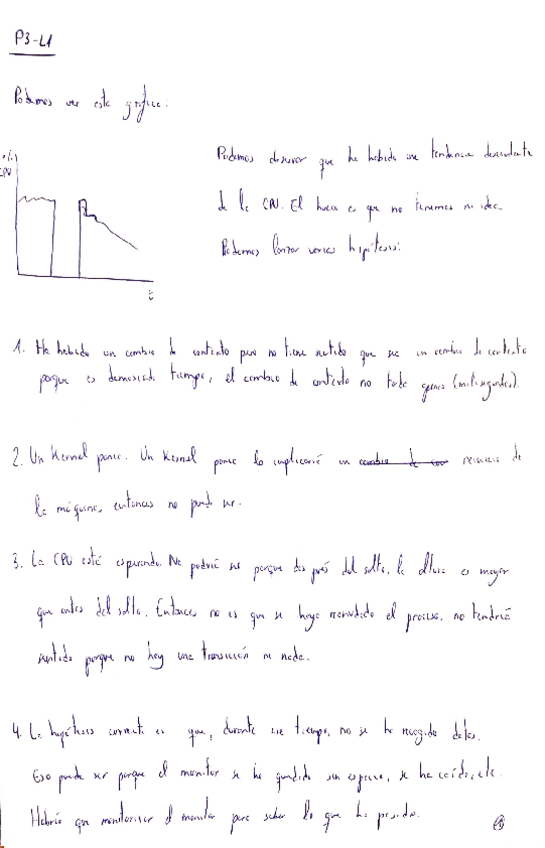 P3-L1
Podemos ver esta gráfica.
% CPU
t
Podemos observar que ha habido una tendencia descendente
de la CPU. El hueco es que no tenemos ni idea.
Podemos lanzar varias hipótesis:
1. Ha habido un cambio de contexto pero no tiene sentido que sea un cambio de contexto
porque es demasiado tiempo, el cambio de contexto no tarda (milisegundos).
2. Un Kernel panic. Un Kernel panic lo implicaría un reinicio de
la máquina, entonces no puede ser.
3. La CPU está esperando. No podría ser porque después del salto, la altura es mayor
que antes del salto. Entonces no es que se haya reanudado el proceso, no tendría
sentido porque no hay una transición ni nada.
4. La hipótesis correcta es que, durante ese tiempo, no se ha recogido datos.
Eso puede ser porque el monitor se ha quedado sin espacio, se ha caído, etc.
Habría que monitorizar el monitor para saber lo que ha pasado.
1